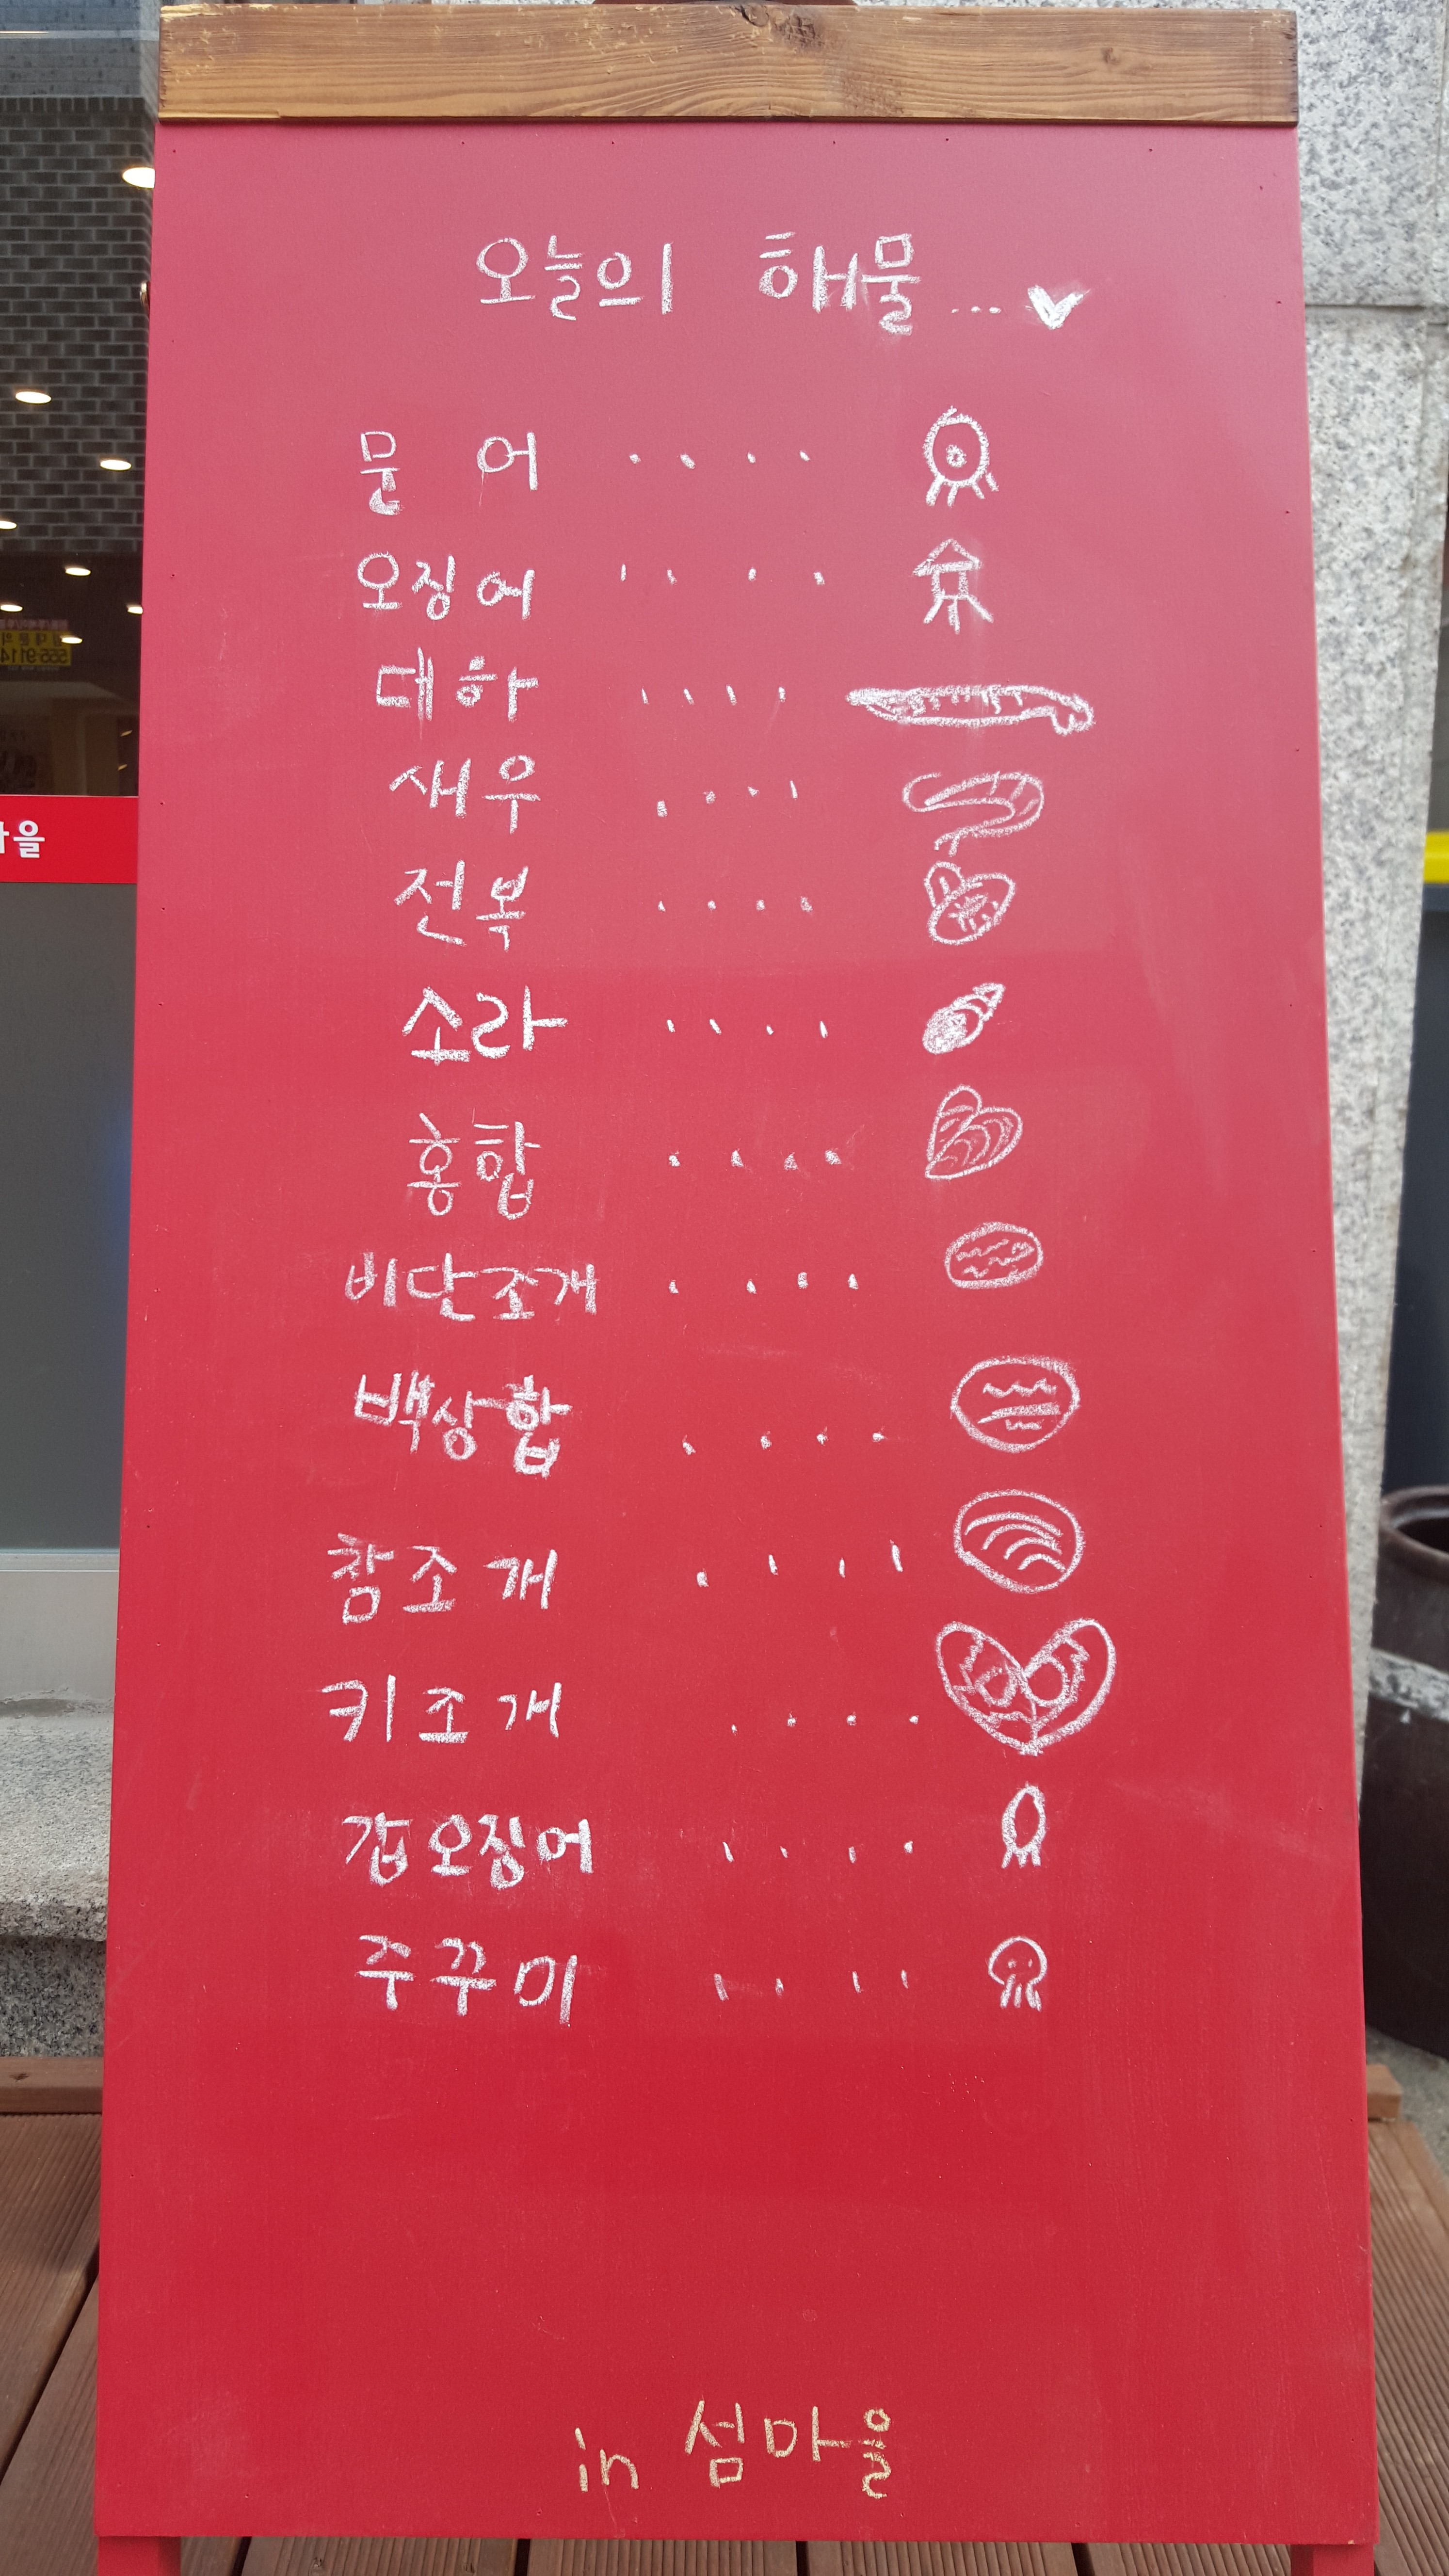 오늘의 해물...
문어 ....
오징어 ....
대하 ....
새우 ....
전복 ....
소라 ....
홍합 ....
비단조개 ....
백상합 ....
참조개 ....
키조개 ....
갑오징어 ....
쭈꾸미 ....
in 섬마을
마을